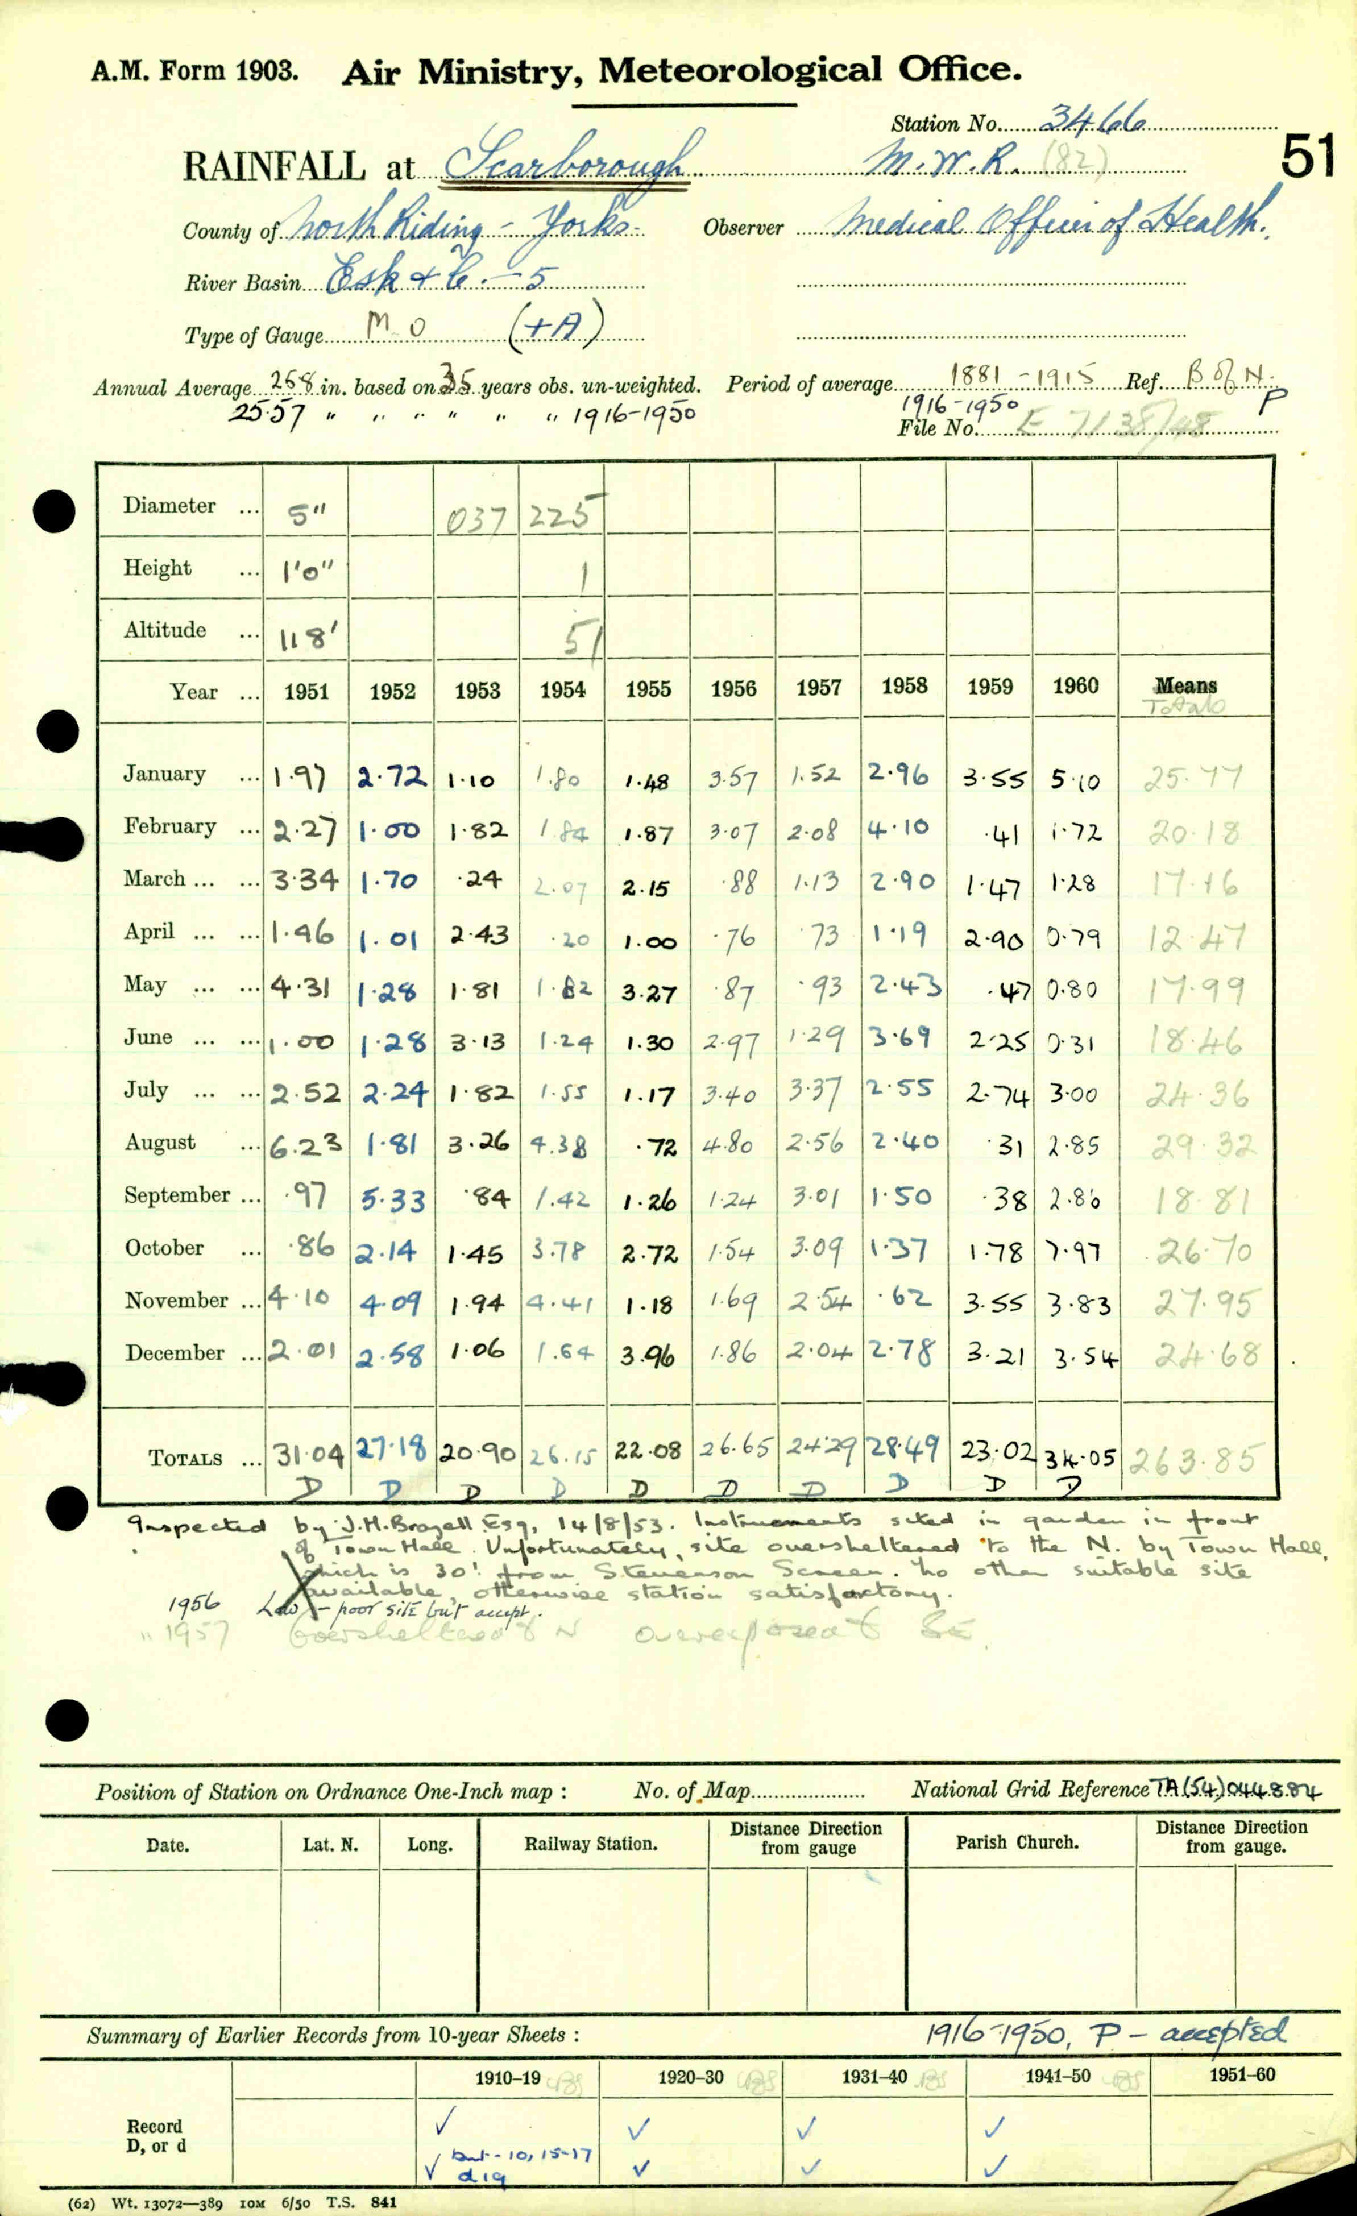 A.M. Form 1903. Air Ministry, Meteorological Office.
Station No. 3466
51
RAINFALL at Scarborough M.W.R. (82)
County of North Riding - Yorks. Observer Medical Officer of Health.
River Basin Esk & C. - 5
Type of Gauge M O (+A)
Annual Average 25.8 in. based on 35 years obs. un-weighted. Period of average 1881-1915 Ref. B of N.
25.57 " " " " " " 1916-1950 1916-1950 P
File No. E 7138/48
Diameter ... 5" 037 225
Height ... 1'0" 1
Altitude ... 118' 51
Year ... 1951 1952 1953 1954 1955 1956 1957 1958 1959 1960 Means
Totals
January ... 1.97 2.72 1.10 1.80 1.48 3.57 1.52 2.96 3.55 5.10 25.77
February ... 2.27 1.00 1.82 1.84 1.87 3.07 2.08 4.10 .41 1.72 20.18
March ... ... 3.34 1.70 .24 2.07 2.15 .88 1.13 2.90 1.47 1.28 17.16
April ... ... 1.46 1.01 2.43 .20 1.00 .76 .73 1.19 2.90 0.79 12.47
May ... ... 4.31 1.28 1.81 1.82 3.27 .87 .93 2.43 .47 0.80 17.99
June ... ... 1.00 1.28 3.13 1.24 1.30 2.97 1.29 3.69 2.25 0.31 18.46
July ... ... 2.52 2.24 1.82 1.55 1.17 3.40 3.37 2.55 2.74 3.00 24.36
August ... 6.23 1.81 3.26 4.38 .72 4.80 2.56 2.40 .31 2.85 29.32
September ... .97 5.33 .84 1.42 1.26 1.24 3.01 1.50 .38 2.86 18.81
October ... .86 2.14 1.45 3.78 2.72 1.54 3.09 1.37 1.78 7.97 26.70
November ... 4.10 4.09 1.94 4.41 1.18 1.69 2.54 .62 3.55 3.83 27.95
December ... 2.01 2.58 1.06 1.64 3.96 1.86 2.04 2.78 3.21 3.54 24.68
TOTALS ... 31.04 27.18 20.90 26.15 22.08 26.65 24.29 28.49 23.02 34.05 263.85
D D D D D D D D D D
Inspected by J.H. Brazell Esq, 14/8/53. Instruments sited in garden in front
of Town Hall. Unfortunately, site oversheltered to the N. by Town Hall,
which is 30' from Stevenson Screen. No other suitable site
available, otherwise station satisfactory.
1956 - poor site but accept.
" 1957 Oversheltered to N overexposed to SE.
Position of Station on Ordnance One-Inch map : No. of Map National Grid Reference TA(54)044884
Date. Lat. N. Long. Railway Station. Distance Direction from gauge Parish Church. Distance Direction from gauge.
Summary of Earlier Records from 10-year Sheets : 1916-1950, P - accepted
1910–19 1920–30 1931–40 1941–50 1951–60
Record ✓ ✓ ✓ ✓
D, or d ✓ but -10, 15-17 ✓ ✓ ✓
d 19
(62) Wt. 13072—389 10M 6/50 T.S. 841